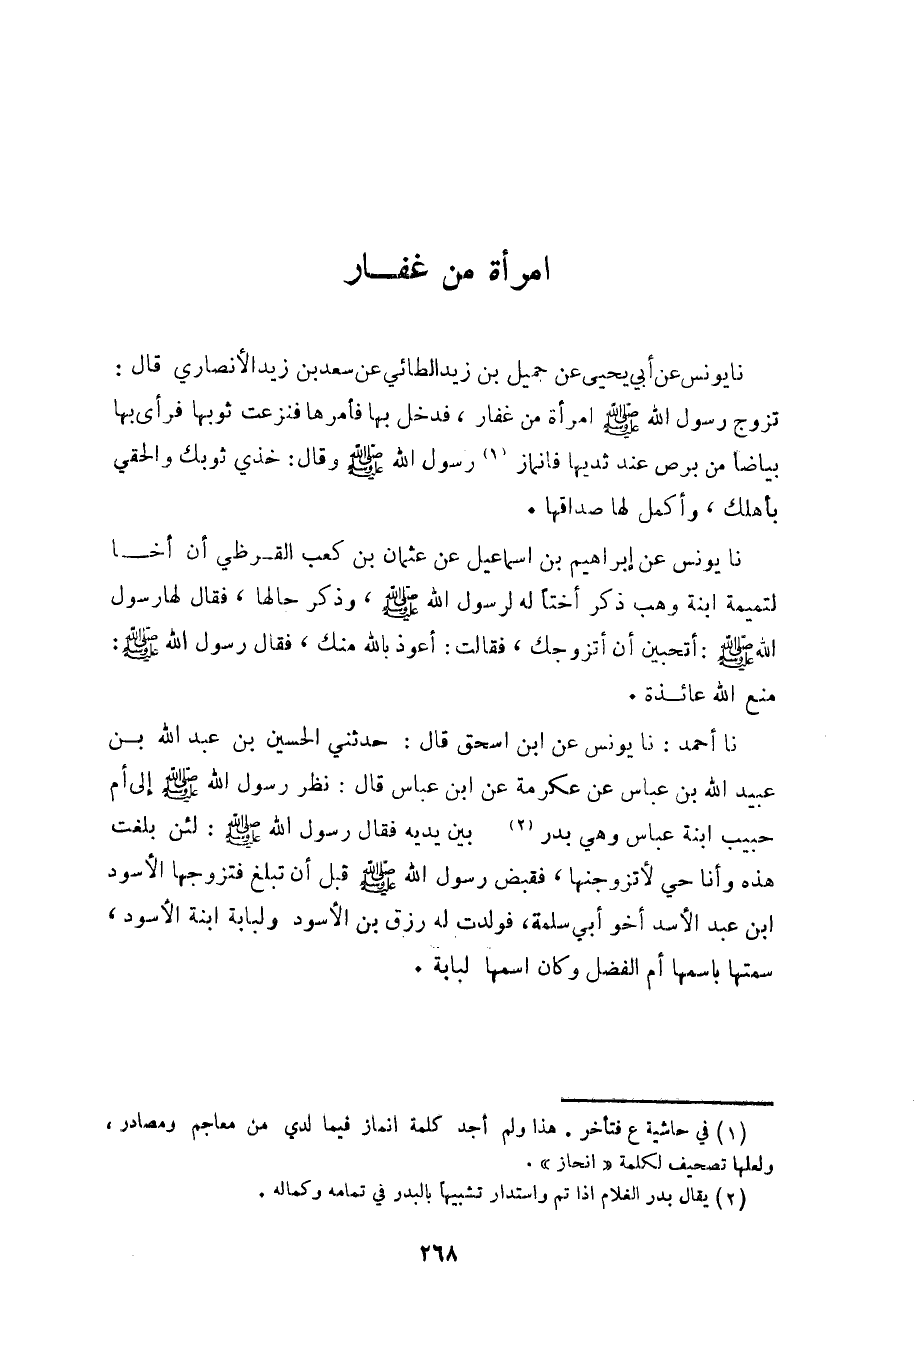 امرأة من غفـــار
نا يونس عن أبي يحيى عن جميل بن زيد الطائي عن سعد بن زيد الأنصاري قال :
تزوج رسول الله ﷺ امرأة من غفار ، فدخل بها فأمرها فنزعت ثوبها فرأى بها
بياضاً من برص عند ثديها فانماز (١) رسول الله ﷺ وقال : خذي ثوبك والحقي
بأهلك ، وأكمل لها صداقها .
نا يونس عن إبراهيم بن اسماعيل عن عثمان بن كعب القـرظي أن أخـــا
لتميمة ابنة وهب ذكر أختاً له لرسول الله ﷺ ، وذكر حالها ، فقال لها رسول
الله ﷺ : أتحبين أن أتزوجك ، فقالت : أعوذ بالله منك ، فقال رسول الله ﷺ :
منع الله عائـذة .
نا أحمد : نا يونس عن ابن اسحق قال : حدثني الحسين بن عبد الله بــن
عبيد الله بن عباس عن عكرمة عن ابن عباس قال : نظر رسول الله ﷺ إلى أم
حبيب ابنة عباس وهي بدر (٢) بين يديه فقال رسول الله ﷺ : لئن بلغت
هذه وأنا حي لأتزوجنها ، فقبض رسول الله ﷺ قبل أن تبلغ فتزوجها الأسود
ابن عبد الأسد أخو أبي سلمة ، فولدت له رزق بن الأسود ولبابة ابنة الأسود ،
سمتها باسمها أم الفضل وكان اسمها لبابة .
(١) في حاشية ع فتأخر . هذا ولم أجد كلمة انماز فيما لدي من معاجم ومصادر ،
ولعلها تصحيف لكلمة « انحاز » .
(٢) يقال بدر الغلام اذا تم واستدار تشبيهاً بالبدر في تمامه وكماله .
٢٦٨